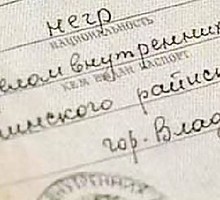 негр
НАЦИОНАЛЬНОСТЬ
елом внутренних
КЕМ ВЫДАН ПАСПОРТ
нинского райис
гор. Влад
ВНУТРЕННИХ